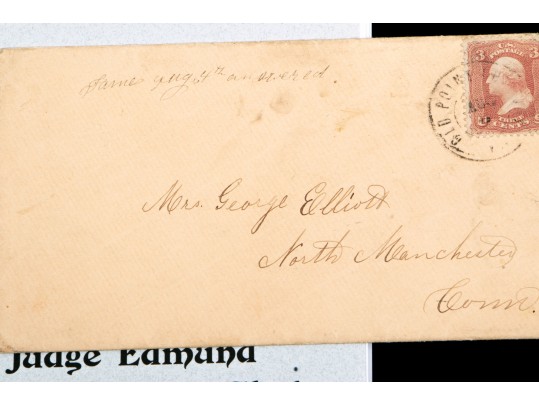 James Aug 4th answered.
U.S. POSTAGE
3 3
THREE
CENTS
OLD POINT
AUG
Mrs. George Elliott
North Manchester
Conn.
Judge Edmund